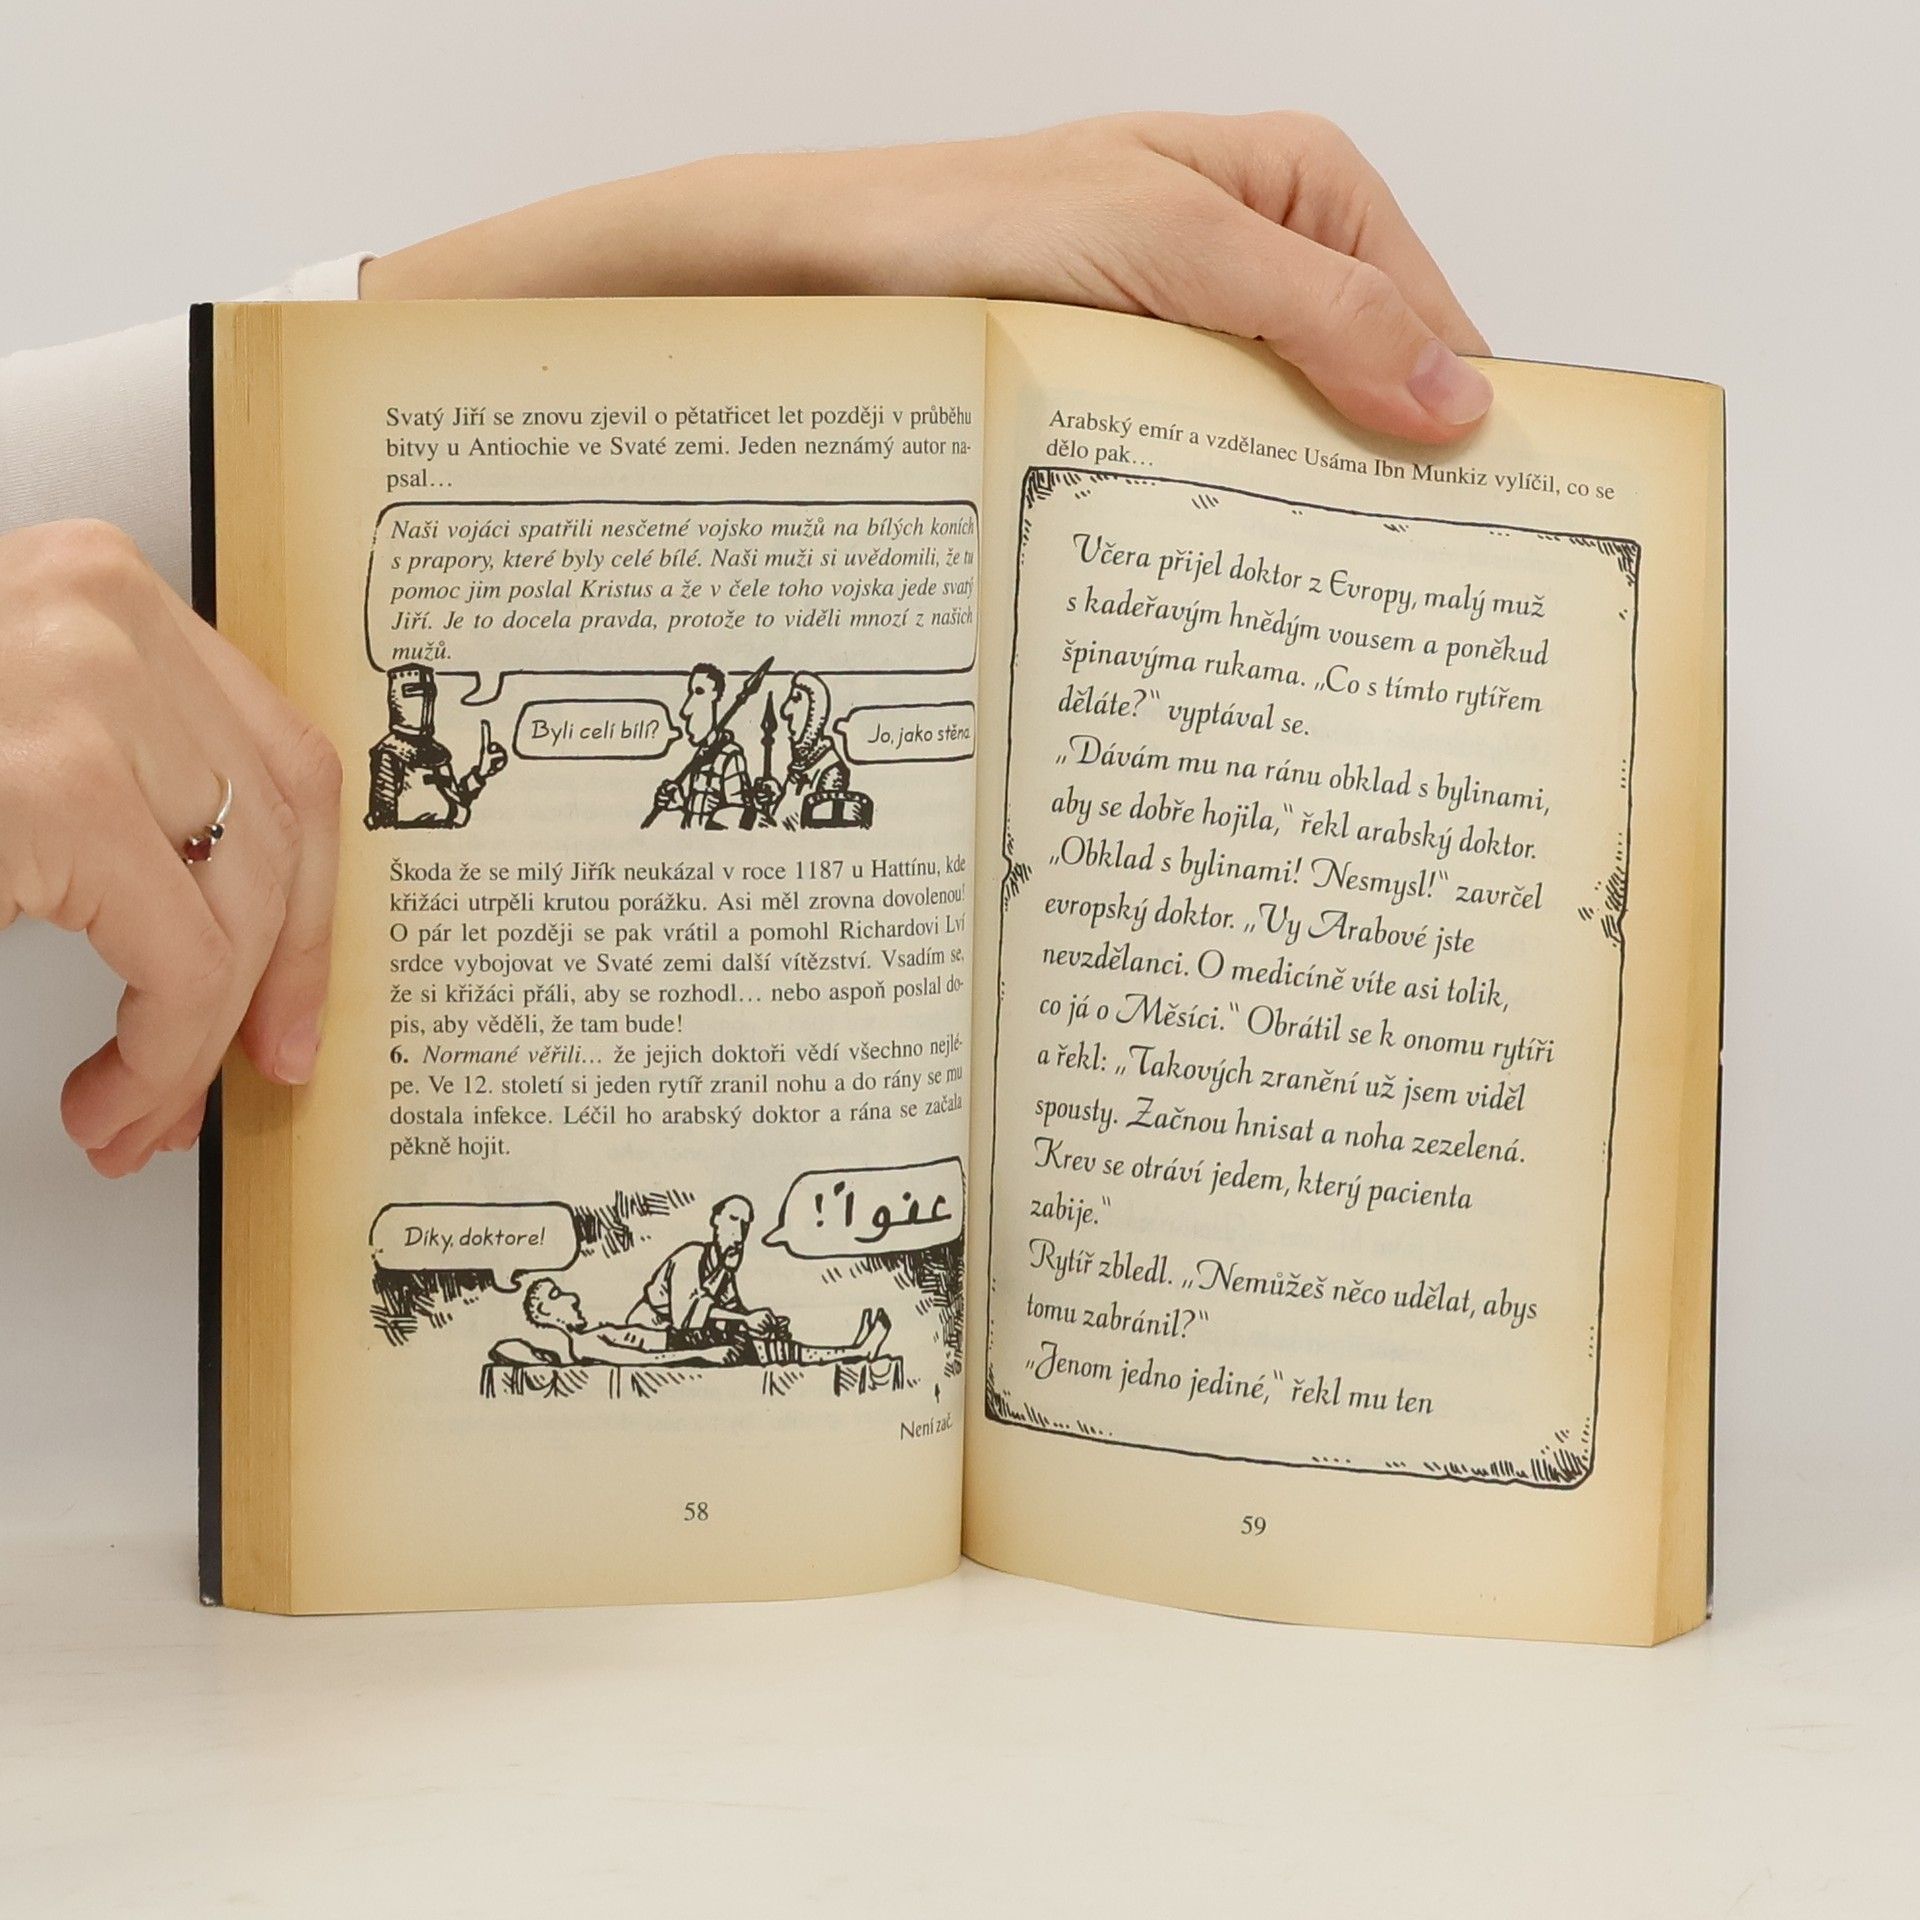 Svatý Jiří se znovu zjevil o pětatřicet let později v průběhu
bitvy u Antiochie ve Svaté zemi. Jeden neznámý autor na-
psal…
Naši vojáci spatřili nesčetné vojsko mužů na bílých koních
s prapory, které byly celé bílé. Naši muži si uvědomili, že tu
pomoc jim poslal Kristus a že v čele toho vojska jede svatý
Jiří. Je to docela pravda, protože to viděli mnozí z našich
mužů.
Byli celí bílí?
Jo, jako stěna
Škoda že se milý Jiřík neukázal v roce 1187 u Hattínu, kde
křižáci utrpěli krutou porážku. Asi měl zrovna dovolenou!
O pár let později se pak vrátil a pomohl Richardovi Lví
srdce vybojovat ve Svaté zemi další vítězství. Vsadím se,
že si křižáci přáli, aby se rozhodl… nebo aspoň poslal do-
pis, aby věděli, že tam bude!
6. Normané věřili… že jejich doktoři vědí všechno nejlé-
pe. Ve 12. století si jeden rytíř zranil nohu a do rány se mu
dostala infekce. Léčil ho arabský doktor a rána se začala
pěkně hojit.
Díky, doktore!
عفواً!
Není zač.
58
Arabský emír a vzdělanec Usáma Ibn Munkiz vylíčil, co se
dělo pak…
Včera přijel doktor z Evropy, malý muž
s kadeřavým hnědým vousem a poněkud
špinavýma rukama. „Co s tímto rytířem
děláte?“ vyptával se.
„Dávám mu na ránu obklad s bylinami,
aby se dobře hojila,“ řekl arabský doktor.
„Obklad s bylinami! Nesmysl!“ zavrčel
evropský doktor. „Vy Arabové jste
nevzdělanci. O medicíně víte asi tolik,
co já o Měsíci.“ Obrátil se k onomu rytíři
a řekl: „Takových zranění už jsem viděl
spousty. Začnou hnisat a noha zezelená.
Krev se otráví jedem, který pacienta
zabije.“
Rytíř zbledl. „Nemůžeš něco udělat, abys
tomu zabránil?“
„Jenom jedno jediné,“ řekl mu ten
59